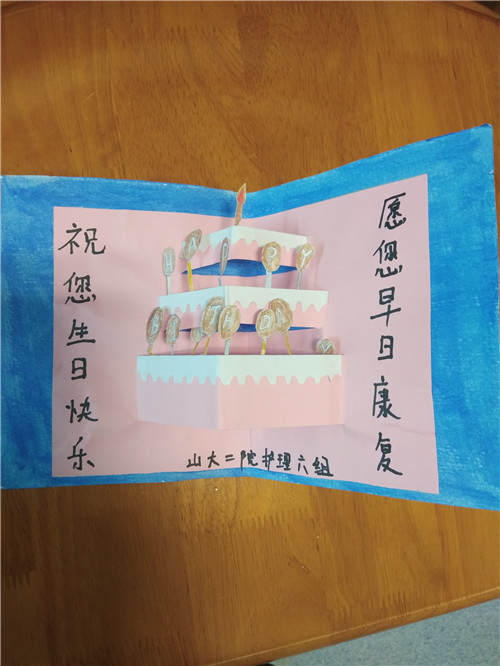 祝您生日快乐
愿您早日康复
山大二院护理六组